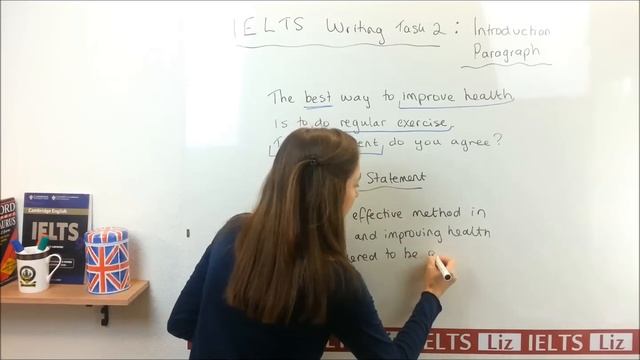 IELTS Writing Task 2 : Introduction
Paragraph
The best way to improve health
is to do regular exercise.
do you agree?
Statement
effective method in
and improving health
to be
Cambridge English
IELTS
IELTS Liz IELTS Liz